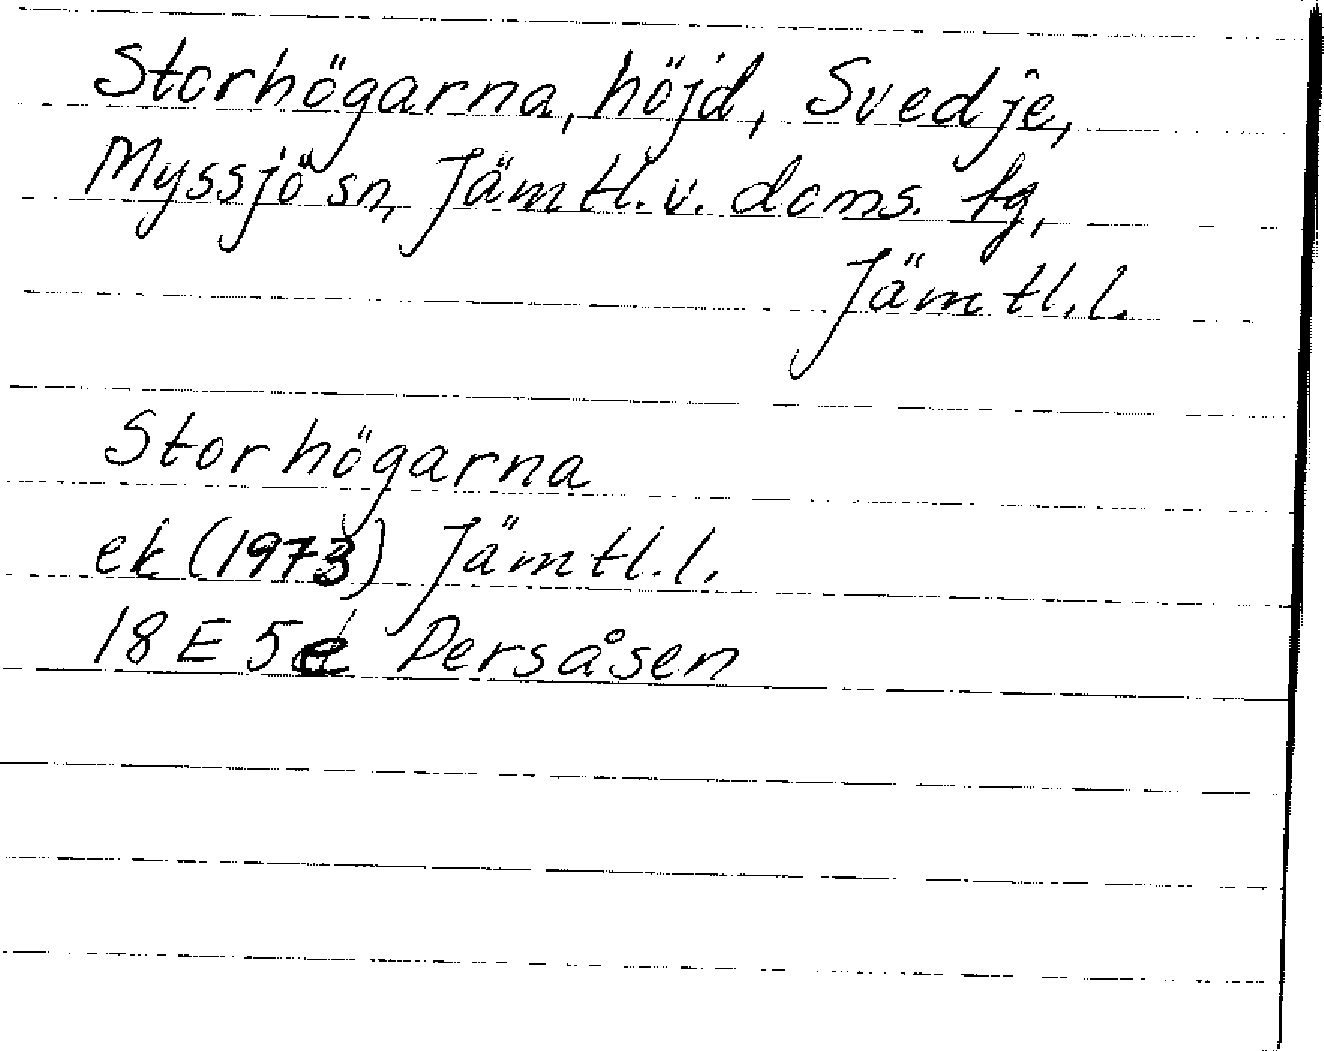 Storhögarna, höjd, Svedje,
Myssjö sn, Jämtl. v. doms. tg,
Jämtl. l.
Storhögarna
ek (1973) Jämtl. l.
18 E 5e Persåsen